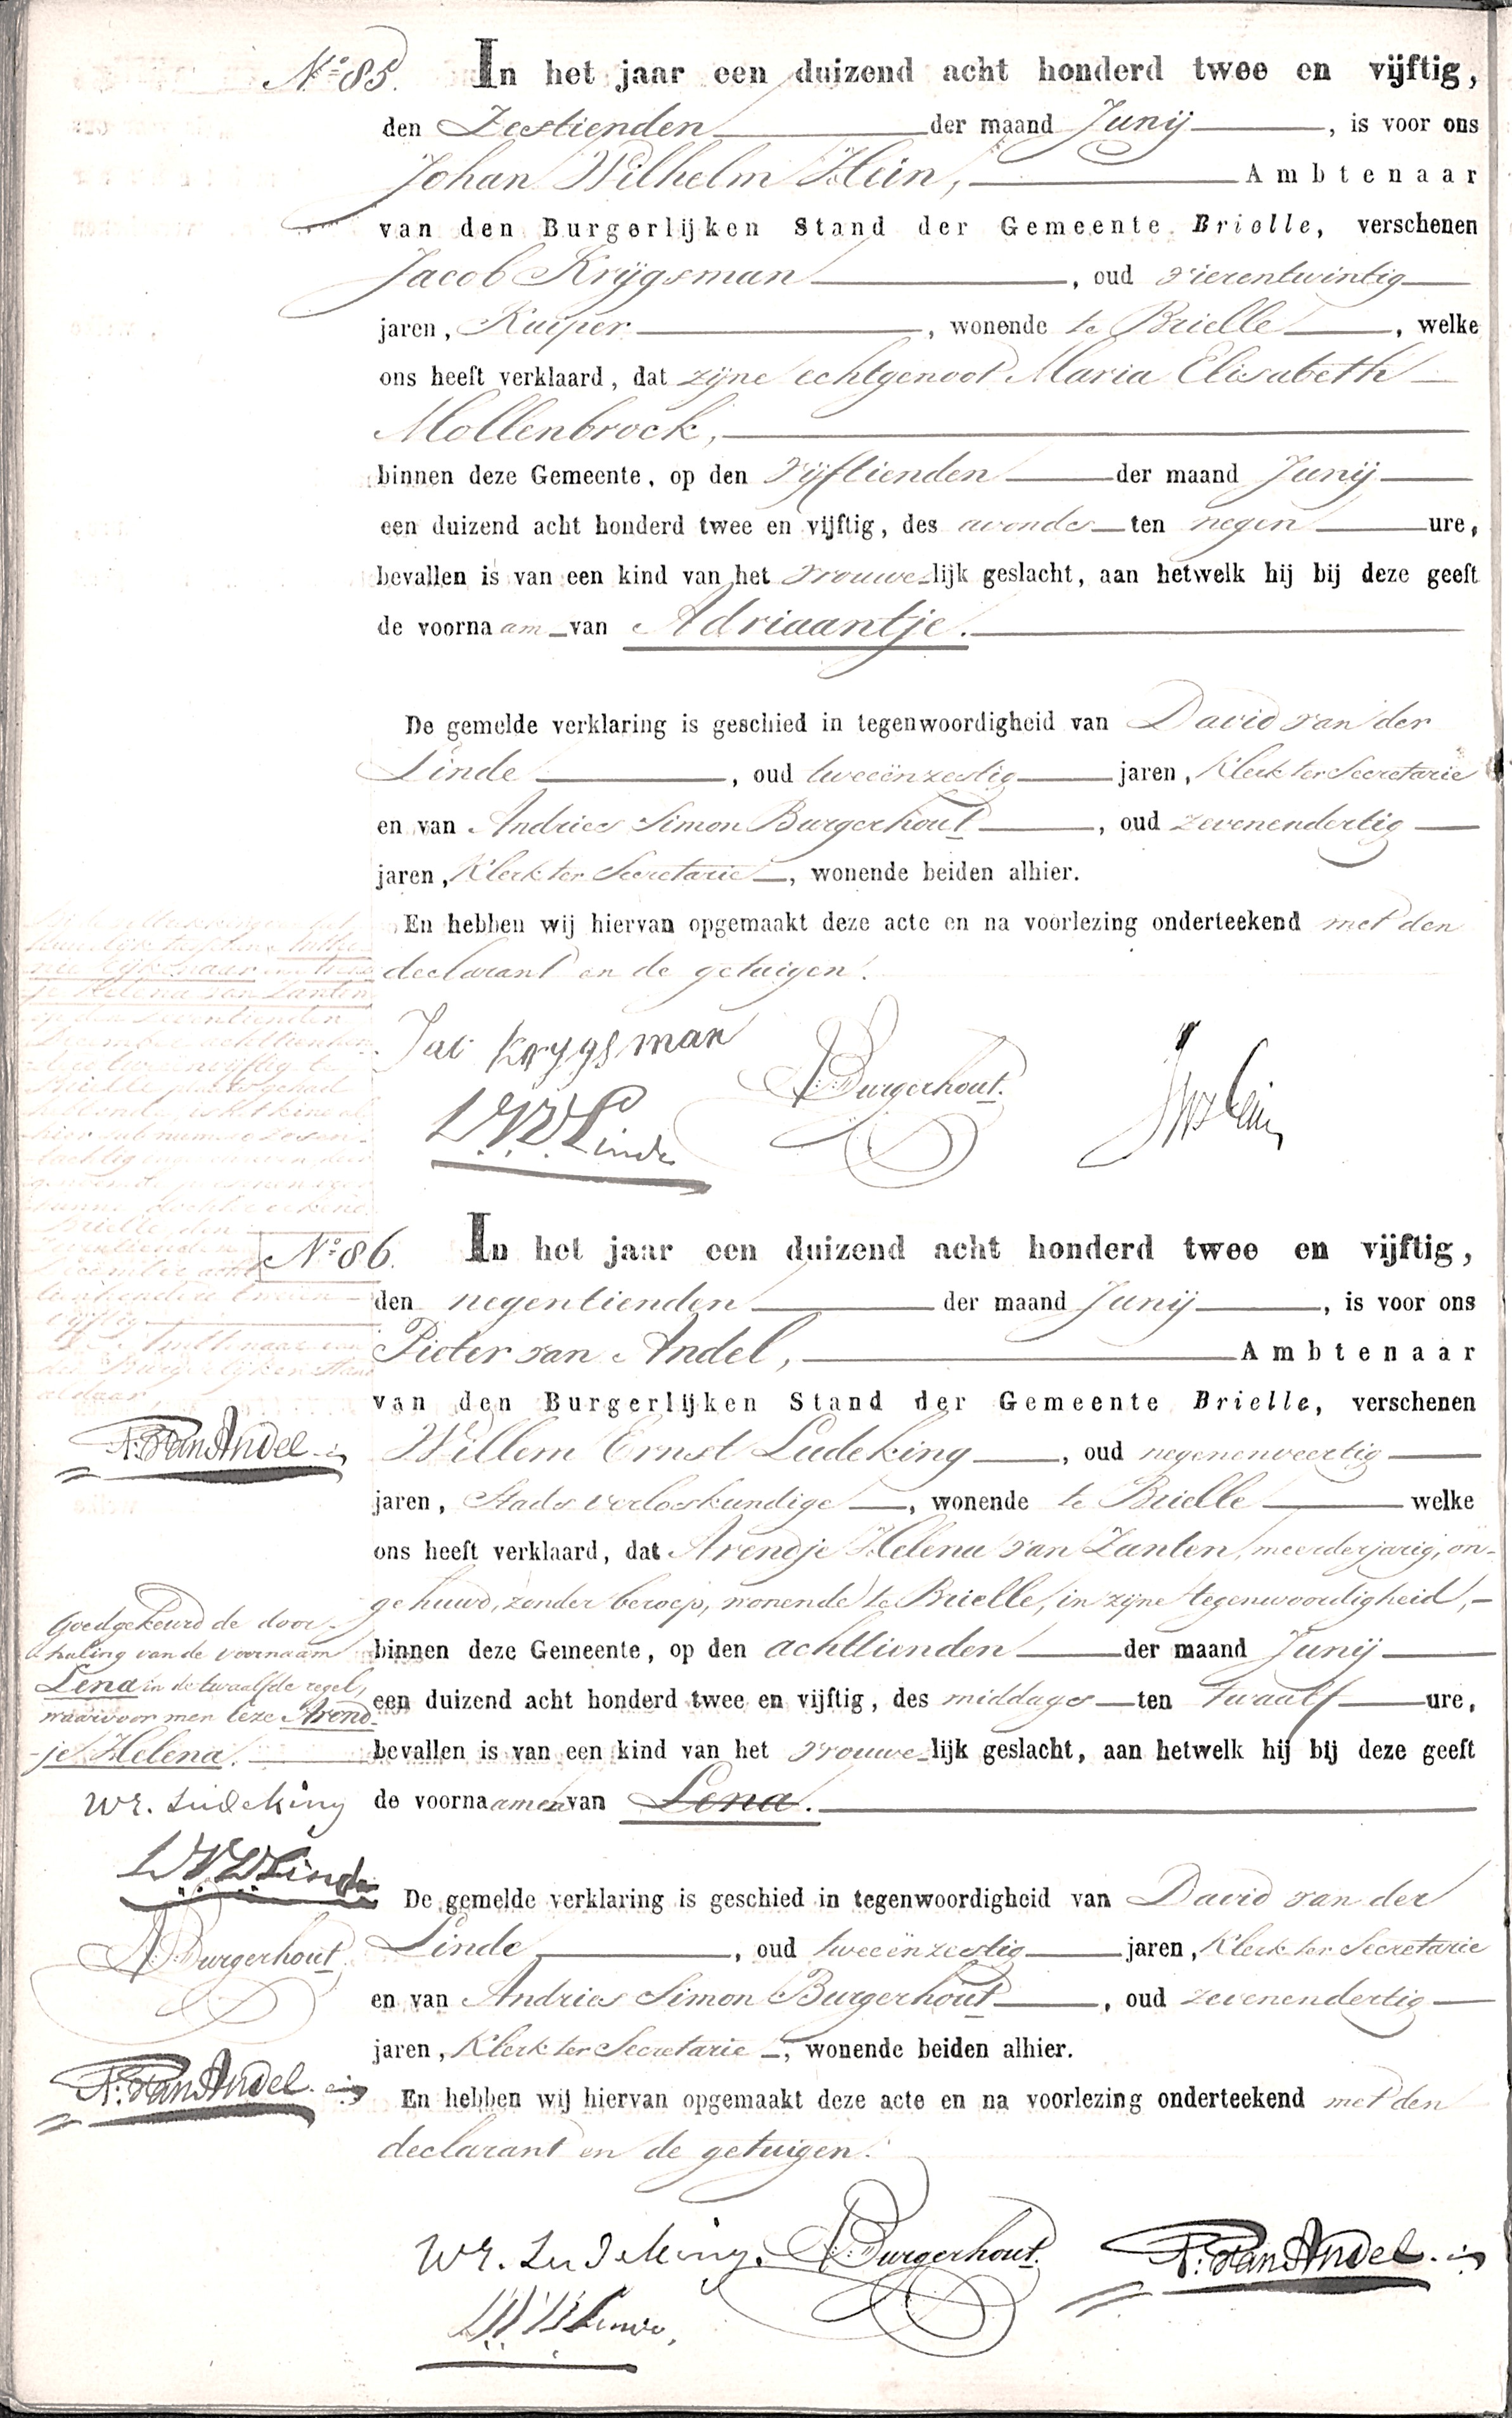 No 85.
In het jaar een duizend acht honderd twee en vijftig,
den Zestienden der maand Junij, is voor ons
Johan Wilhelm Hein, Ambtenaar
van den Burgerlijken Stand der Gemeente Brielle, verschenen
Jacob Krijgsman, oud vierentwintig
jaren, Kuiper, wonende te Brielle, welke
ons heeft verklaard, dat zijne echtgenoot Maria Elisabeth
Mollenbrock,
binnen deze Gemeente, op den vijftienden der maand Junij
een duizend acht honderd twee en vijftig, des avonds ten negen ure,
bevallen is van een kind van het vrouwelijk geslacht, aan hetwelk hij bij deze geeft
de voornaam van Adriaantje.
De gemelde verklaring is geschied in tegenwoordigheid van David van der
Linde, oud tweeënzestig jaren, Klerk ter Secretarie
en van Andries Simon Burgerhout, oud zevenendertig
jaren, Klerk ter Secretarie, wonende beiden alhier.
En hebben wij hiervan opgemaakt deze acte en na voorlezing onderteekend met den
declarant en de getuigen.
Jac Krygsman
A:S: Burgerhout.
JWHein
D.V.D. Linde
huwelijk tusschen Wilhe-
je Helena van Zanten
op den zeventienden
December achttienhon-
derd tweeenvijftig te
Brielle plaats gehad
hebbende is het kind al-
hier sub numero zesen-
tachtig
Brielle den
zeventienden
December acht-
tienhonderd tweeen-
vijftig
De Ambtenaar van
den Burgerlijken Stand
aldaar
P. van Andel
No 86.
In het jaar een duizend acht honderd twee en vijftig,
den negentienden der maand Junij, is voor ons
Pieter van Andel, Ambtenaar
van den Burgerlijken Stand der Gemeente Brielle, verschenen
Willem Ernst Ludeking, oud negenenveertig
jaren, Stads verloskundige, wonende te Brielle welke
ons heeft verklaard, dat Arendje Helena van Zanten, meerderjarig, on-
gehuwd, zonder beroep, wonende te Brielle, in zijne tegenwoordigheid,
binnen deze Gemeente, op den achttienden der maand Junij
een duizend acht honderd twee en vijftig, des middags ten twaalf ure,
bevallen is van een kind van het vrouwelijk geslacht, aan hetwelk hij bij deze geeft
de voornaamen van Lena.
Goedgekeurd de door-
haling van de voornaam
Lena in de twaalfde regel,
waarvoor men leze Arend-
je Helena.
WE. Ludeking
D.V.D. Linde
A:S: Burgerhout
P. van Andel
De gemelde verklaring is geschied in tegenwoordigheid van David van der
Linde, oud tweeënzestig jaren, Klerk ter Secretarie
en van Andries Simon Burgerhout, oud zevenendertig
jaren, Klerk ter Secretarie, wonende beiden alhier.
En hebben wij hiervan opgemaakt deze acte en na voorlezing onderteekend met den
declarant en de getuigen.
WE. Ludeking.
A:S: Burgerhout.
P. van Andel
D.V.D. Linde,